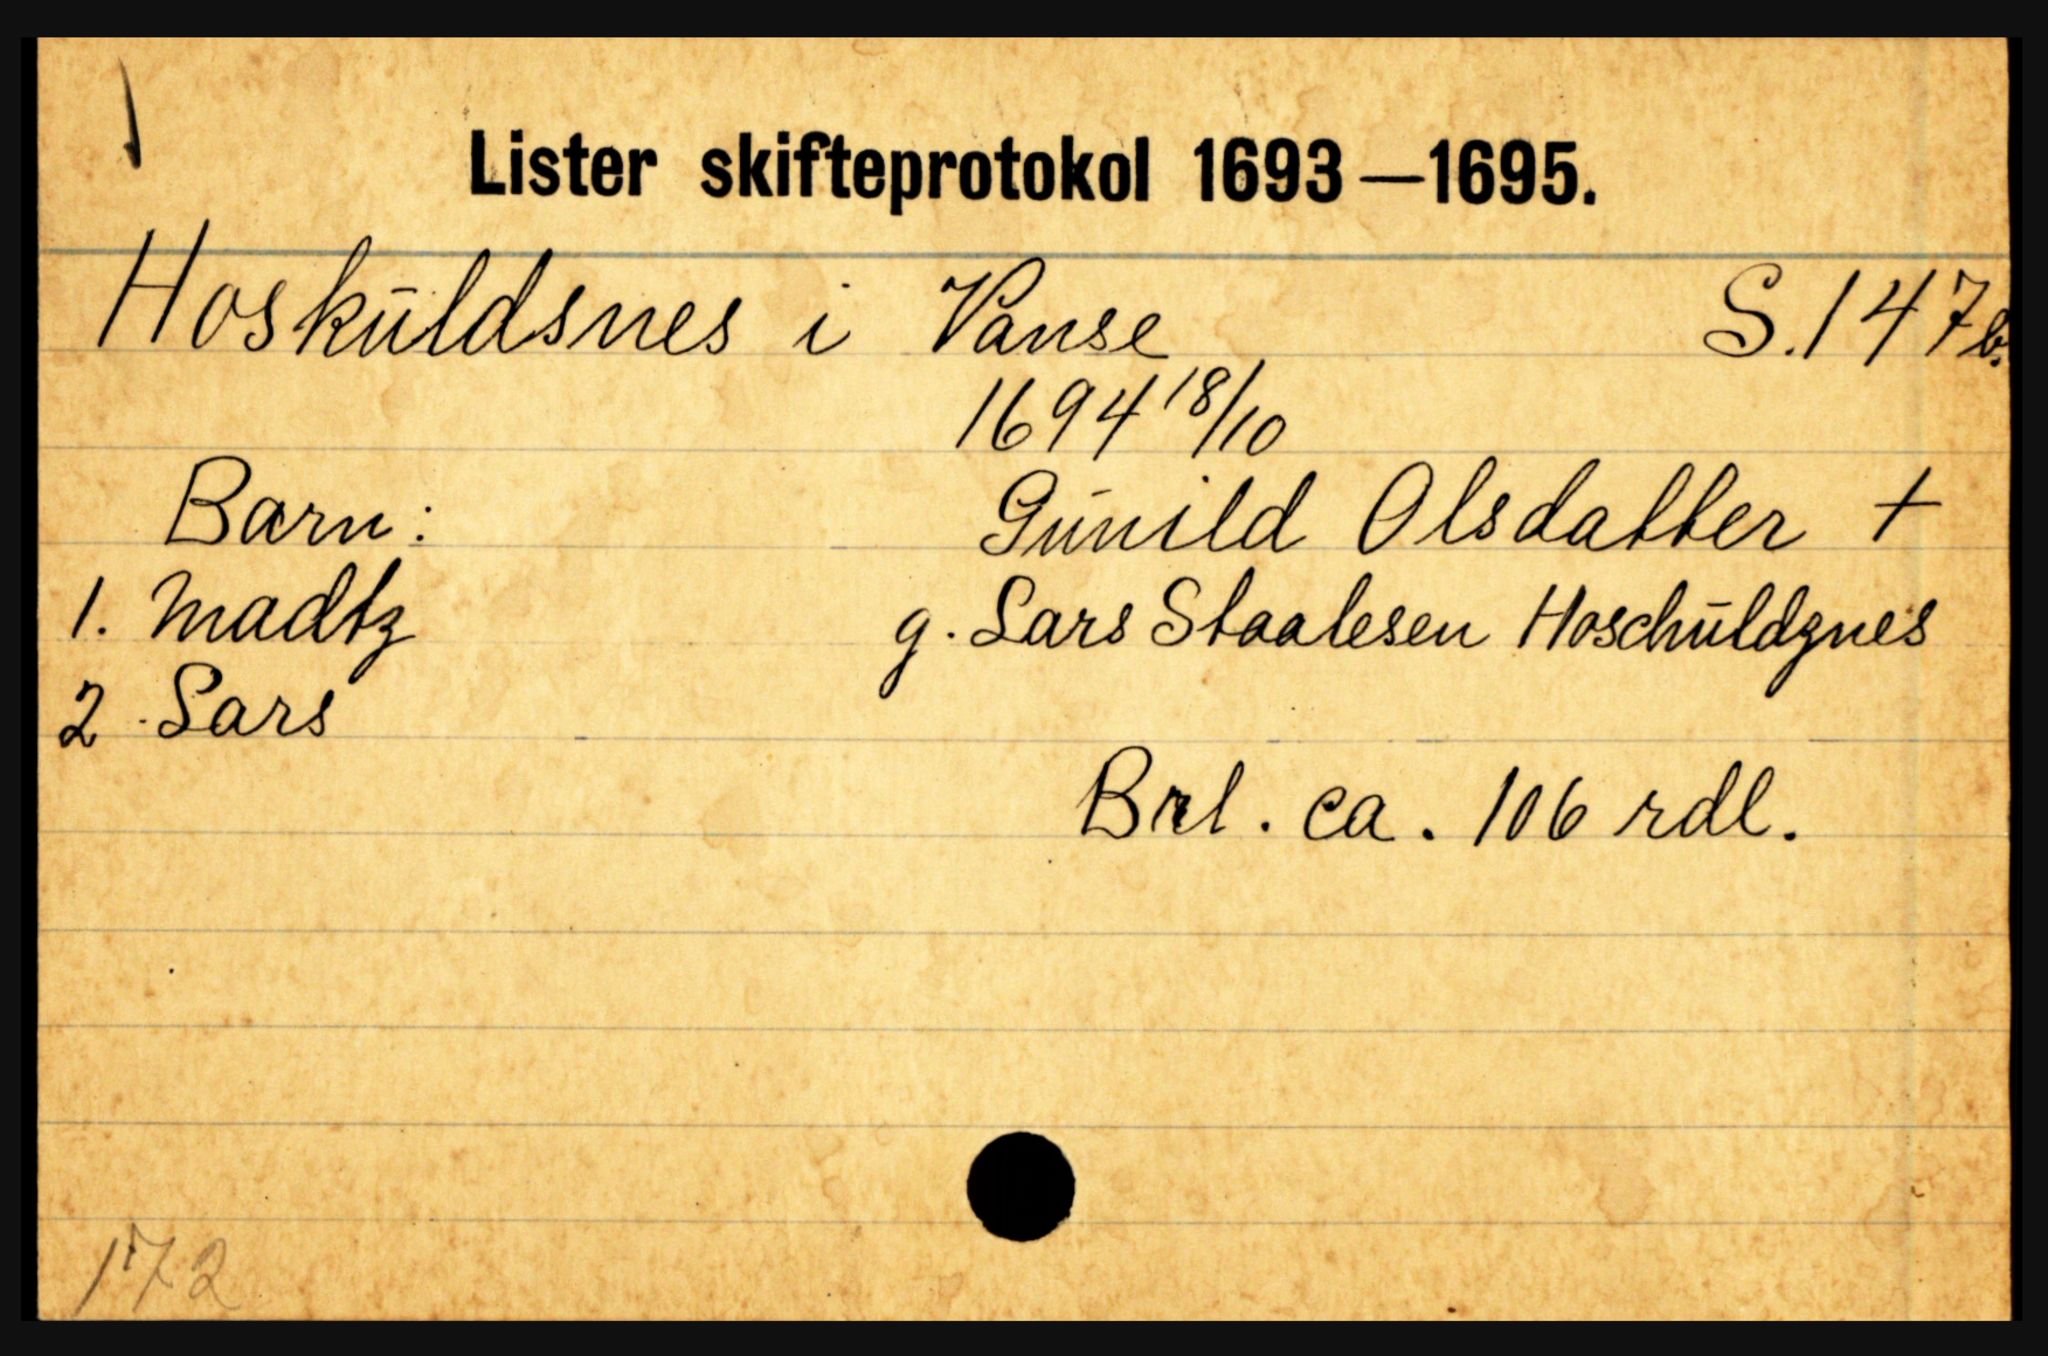 Lister skifteprotokol 1693—1695.
Hoskuldsnes i Vanse S. 147b.
1694 18/10
Barn: Gunild Olsdatter +
1. Madtz g. Lars Staalesen Hoschuldznes
2. Lars
Brl. ca. 106 rdl.
172